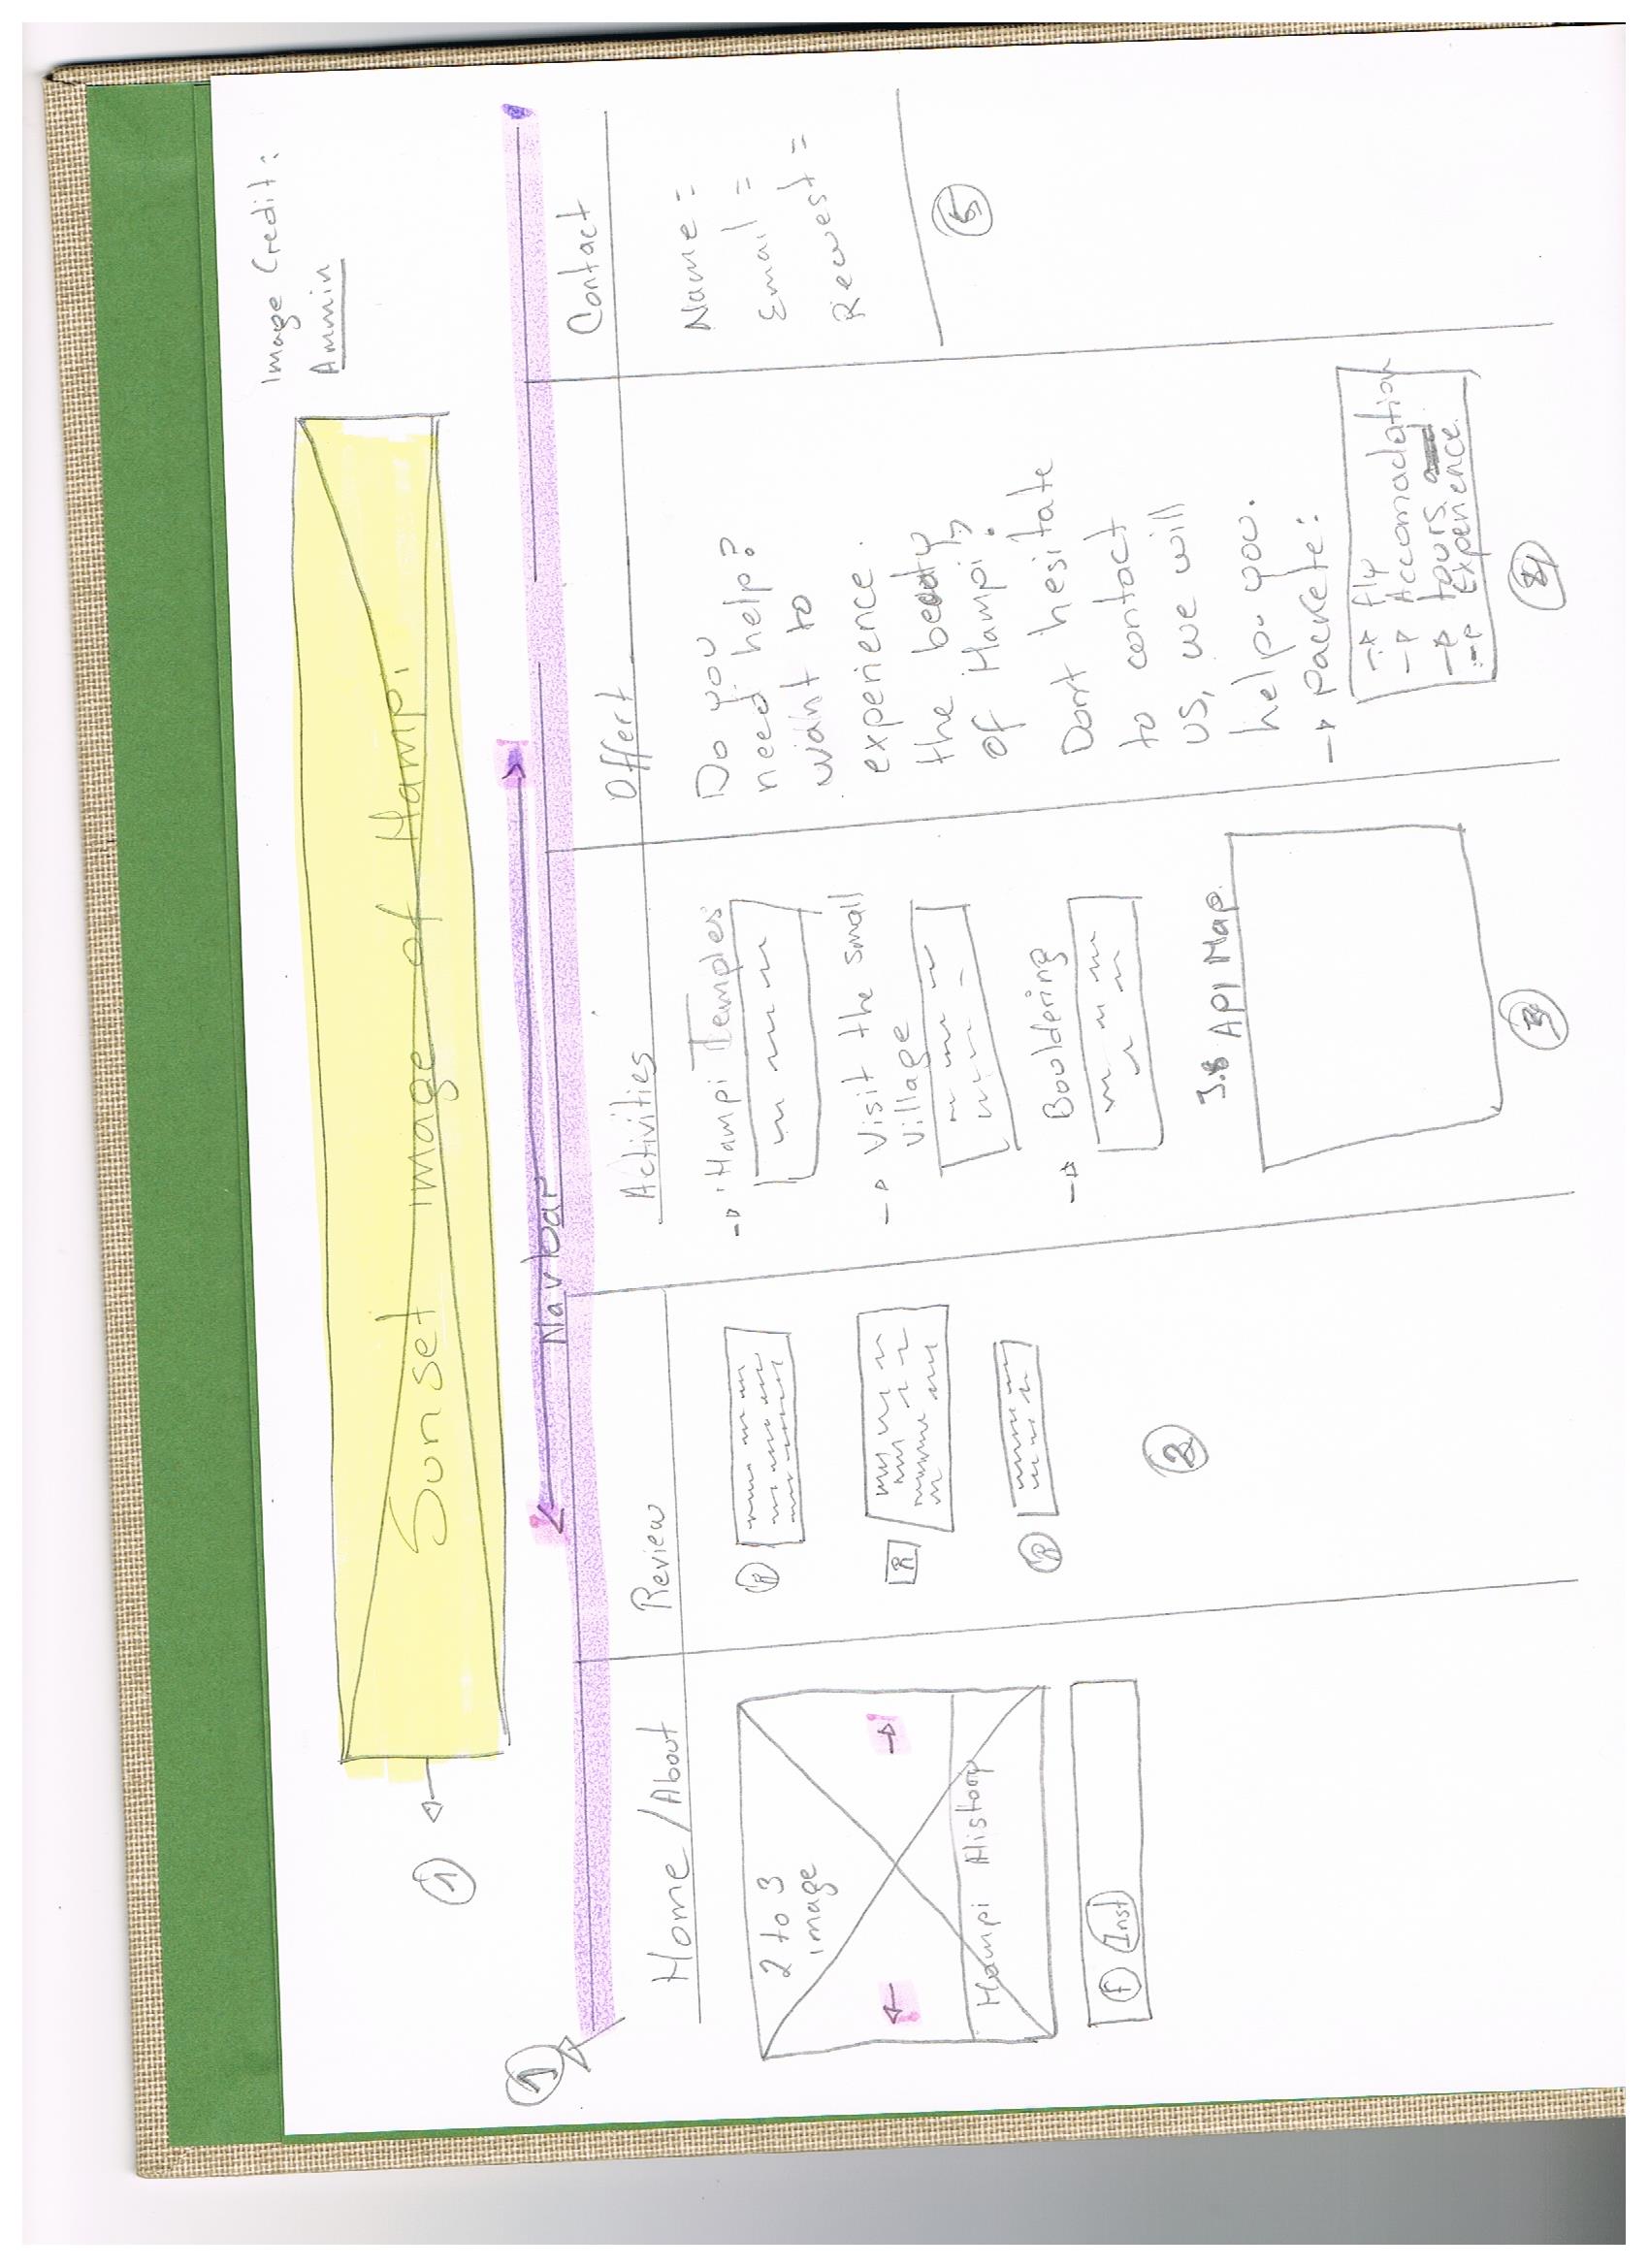 Image Credit:
Ammin
1
Sunset image of Hampi
1
Navbar
Home/About
2 to 3
image
Hampi History
f Inst
Review
R
R
R
2
Activities
Hampi Temples
Visit the small
Village
Bouldering
Api Map.
3
Offert
Do you
need help?
want to
experience.
the beauty
of Hampi?
Don't hesitate
to contact
us, we will
help you.
Packete:
fly
Accomadation
tours
Experience.
4
Contact
Name =
Email =
Rewest =
5